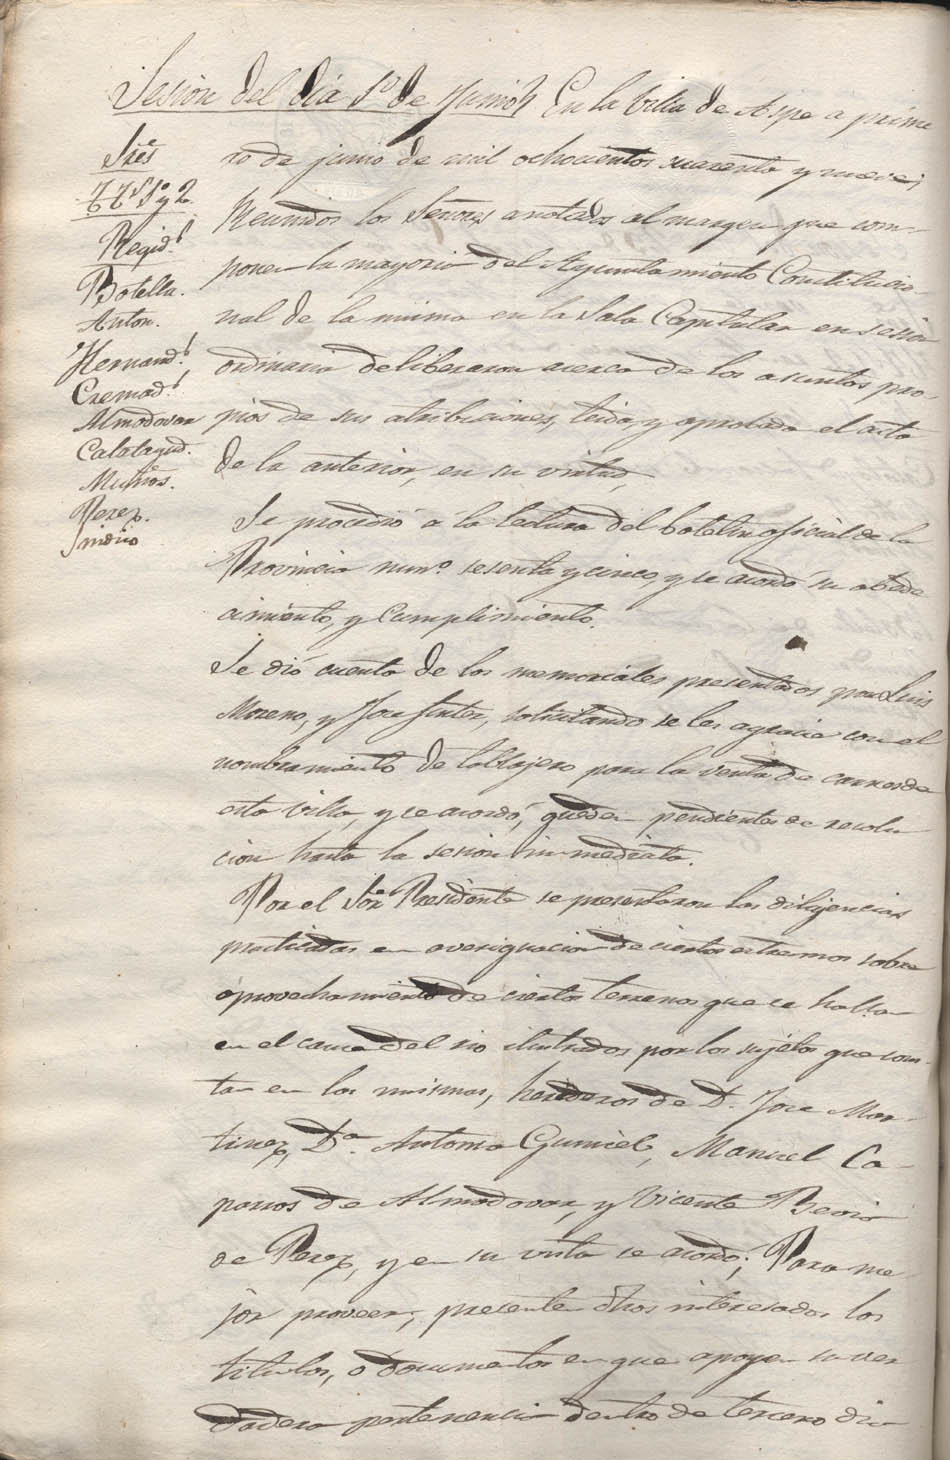 Sesion del dia 1º de Junio // En la Villa de Aspe a prime
ro de junio de mil ochocientos cuarenta y nueve;
Reunidos los Señores anotados al margen que com-
ponen la mayoria del Ayuntamiento Constitucio-
nal de la misma en la Sala Capitular en sesion
ordinaria deliberaron acerca de los asuntos pro-
pios de sus atribuciones, leida, y aprobada el acta
de la anterior, en su virtud,
Sres
TTs 1º y 2º
Regid.s
Botella.
Anton.
Hernand.s
Cremad.s
Almodovar
Calatayud.
Muños.
Perez.
Sindico
Se procedió á la lectura del boletin oficial de la
Provincia numº sesenta y cinco, y se acordó su obede
cimiento, y Cumplimiento.
Se dió cuenta de los memoriales presentados por Luis
Moreno, y Jose, solicitando se les agracie con el
nombramiento de tablajero para la venta de carnes de
esta Villa, y se acordó, queden pendientes de resolu
cion hasta la sesion inmediata.
Por el Sor Presidente se presentaron las dilijencias
practicadas en averiguacion de ciertos estremos sobre
aprovechamiento de ciertos terrenos que se hallan
en el cauce del rio por los sujetos que cons-
tan en las mismas, herederos de D. Jose Mar-
tinez, Dª. Antonia Gumiel, Manuel Ca-
parros de Almodovar, y Vicente
de Perez, y en su vista se acordó; Para me
jor proveer, presenten dhos interesados los
titulos, o documentos en que apoyen su ver
dadera pertenencia dentro de tercero dia